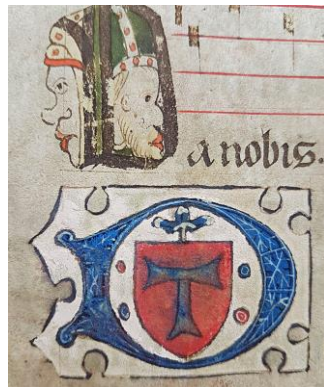 Da nobis.
D